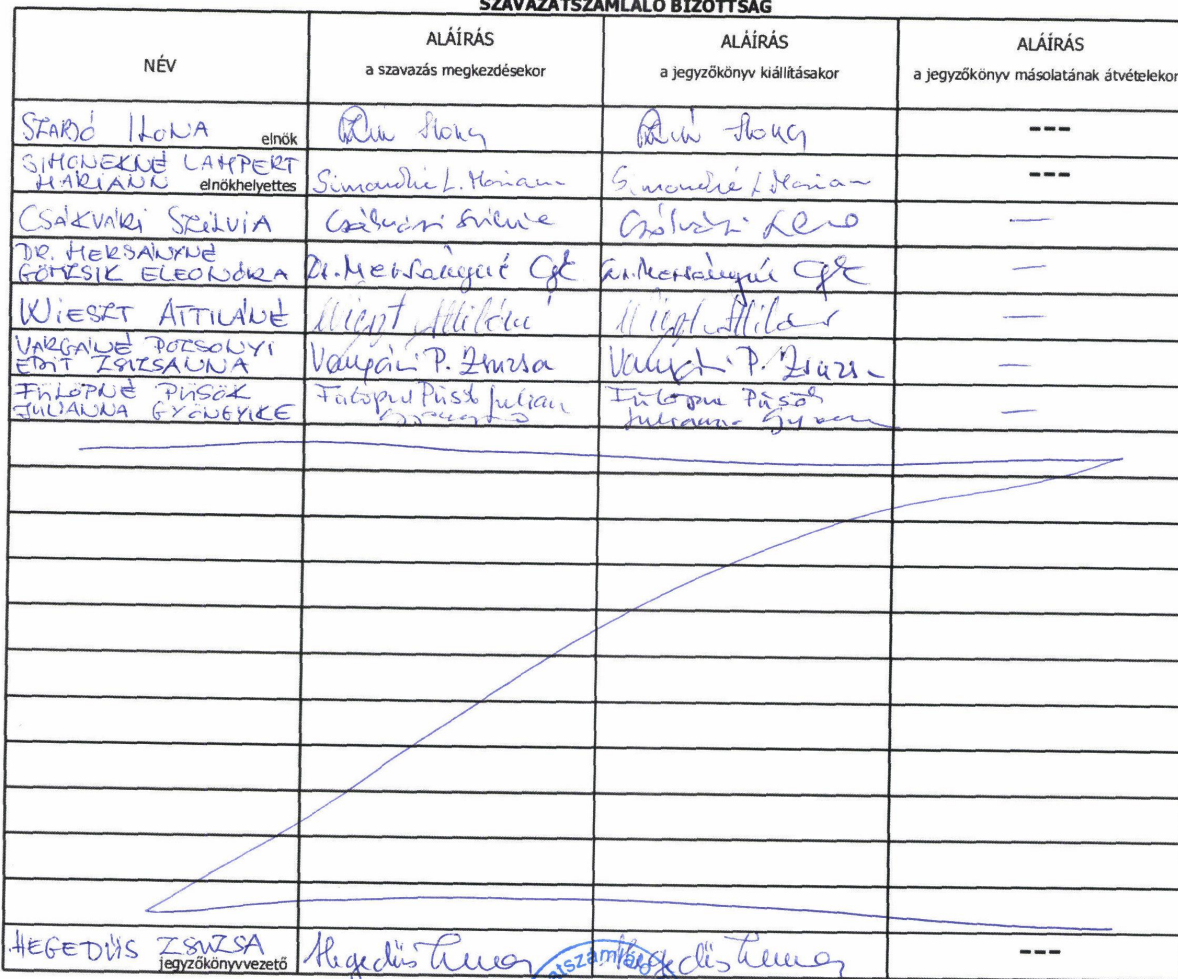 SZAVAZATSZÁMLÁLÓ BIZOTTSÁG
NÉV
ALÁÍRÁS
a szavazás megkezdésekor
ALÁÍRÁS
a jegyzőkönyv kiállításakor
ALÁÍRÁS
a jegyzőkönyv másolatának átvételekor
SZABÓ ILONA elnök
Ilona
Ilona
---
SIMONEKNÉ LAMPERT
MARIANN elnökhelyettes
Simonekné L. Mariann
Simonekné L. Mariann
---
CSÁKVÁRI SZILVIA
Csákvári Szilvia
Csákvári
—
DR. MERSÁNYNÉ
GÖMZSIK ELEONÓRA
Dr. Mersányné
Dr. Mersányné
—
WIESZT ATTILÁNÉ
Wieszt Attiláné
Wieszt Attiláné
—
VARGÁINÉ POZSONYI
EDIT ZSUZSANNA
P. Zsuzsa
P. Zsuzsa
—
FÜLÖPNÉ PÜSÖK
JULIANNA GYÖNGYIKE
Fülöpné Püsök Julianna
Fülöpné Püsök
Julianna
—
HEGEDŰS ZSUZSA
jegyzőkönyvvezető
Hegedűs Zsuzsa
Hegedűs Zsuzsa
---